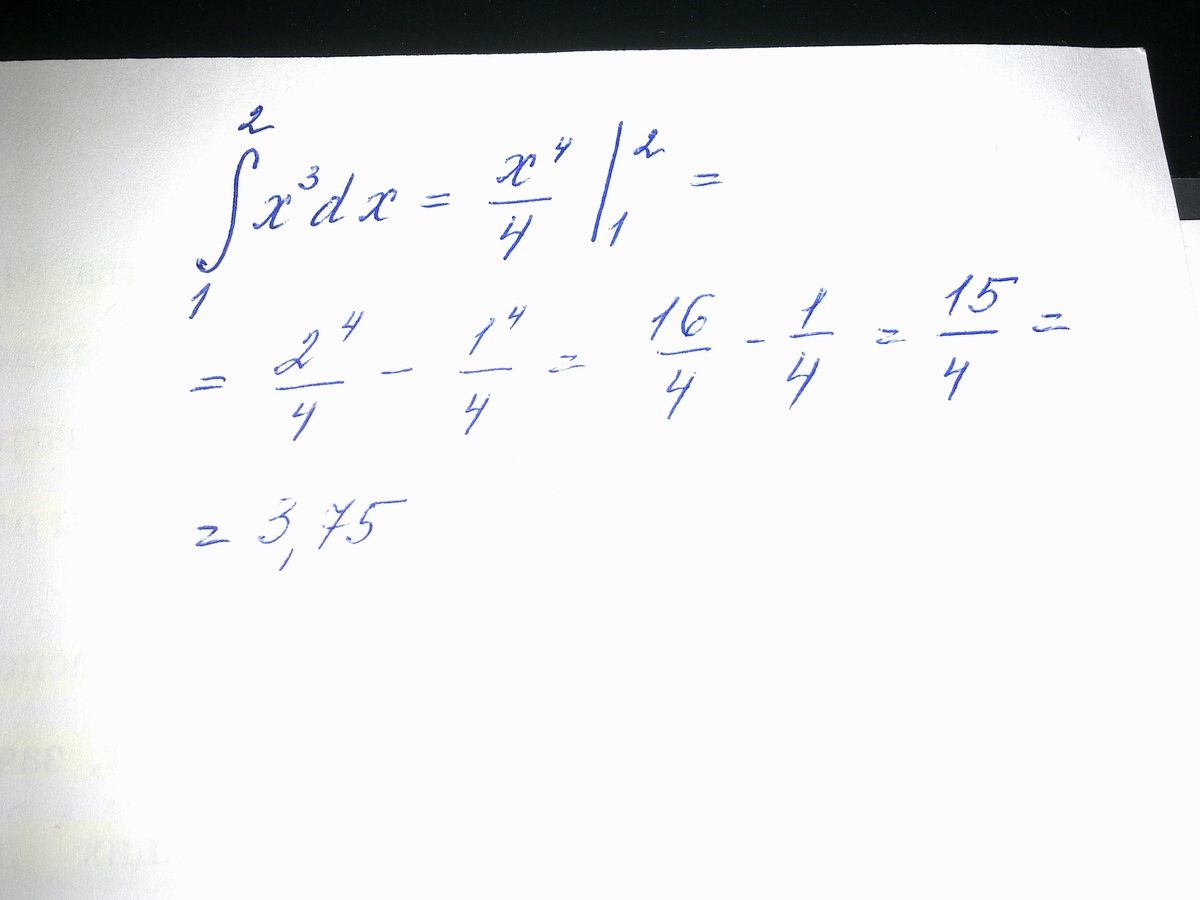 ∫₁² x³dx = x⁴/4 |₁² =
= 2⁴/4 - 1⁴/4 = 16/4 - 1/4 = 15/4 =
= 3,75